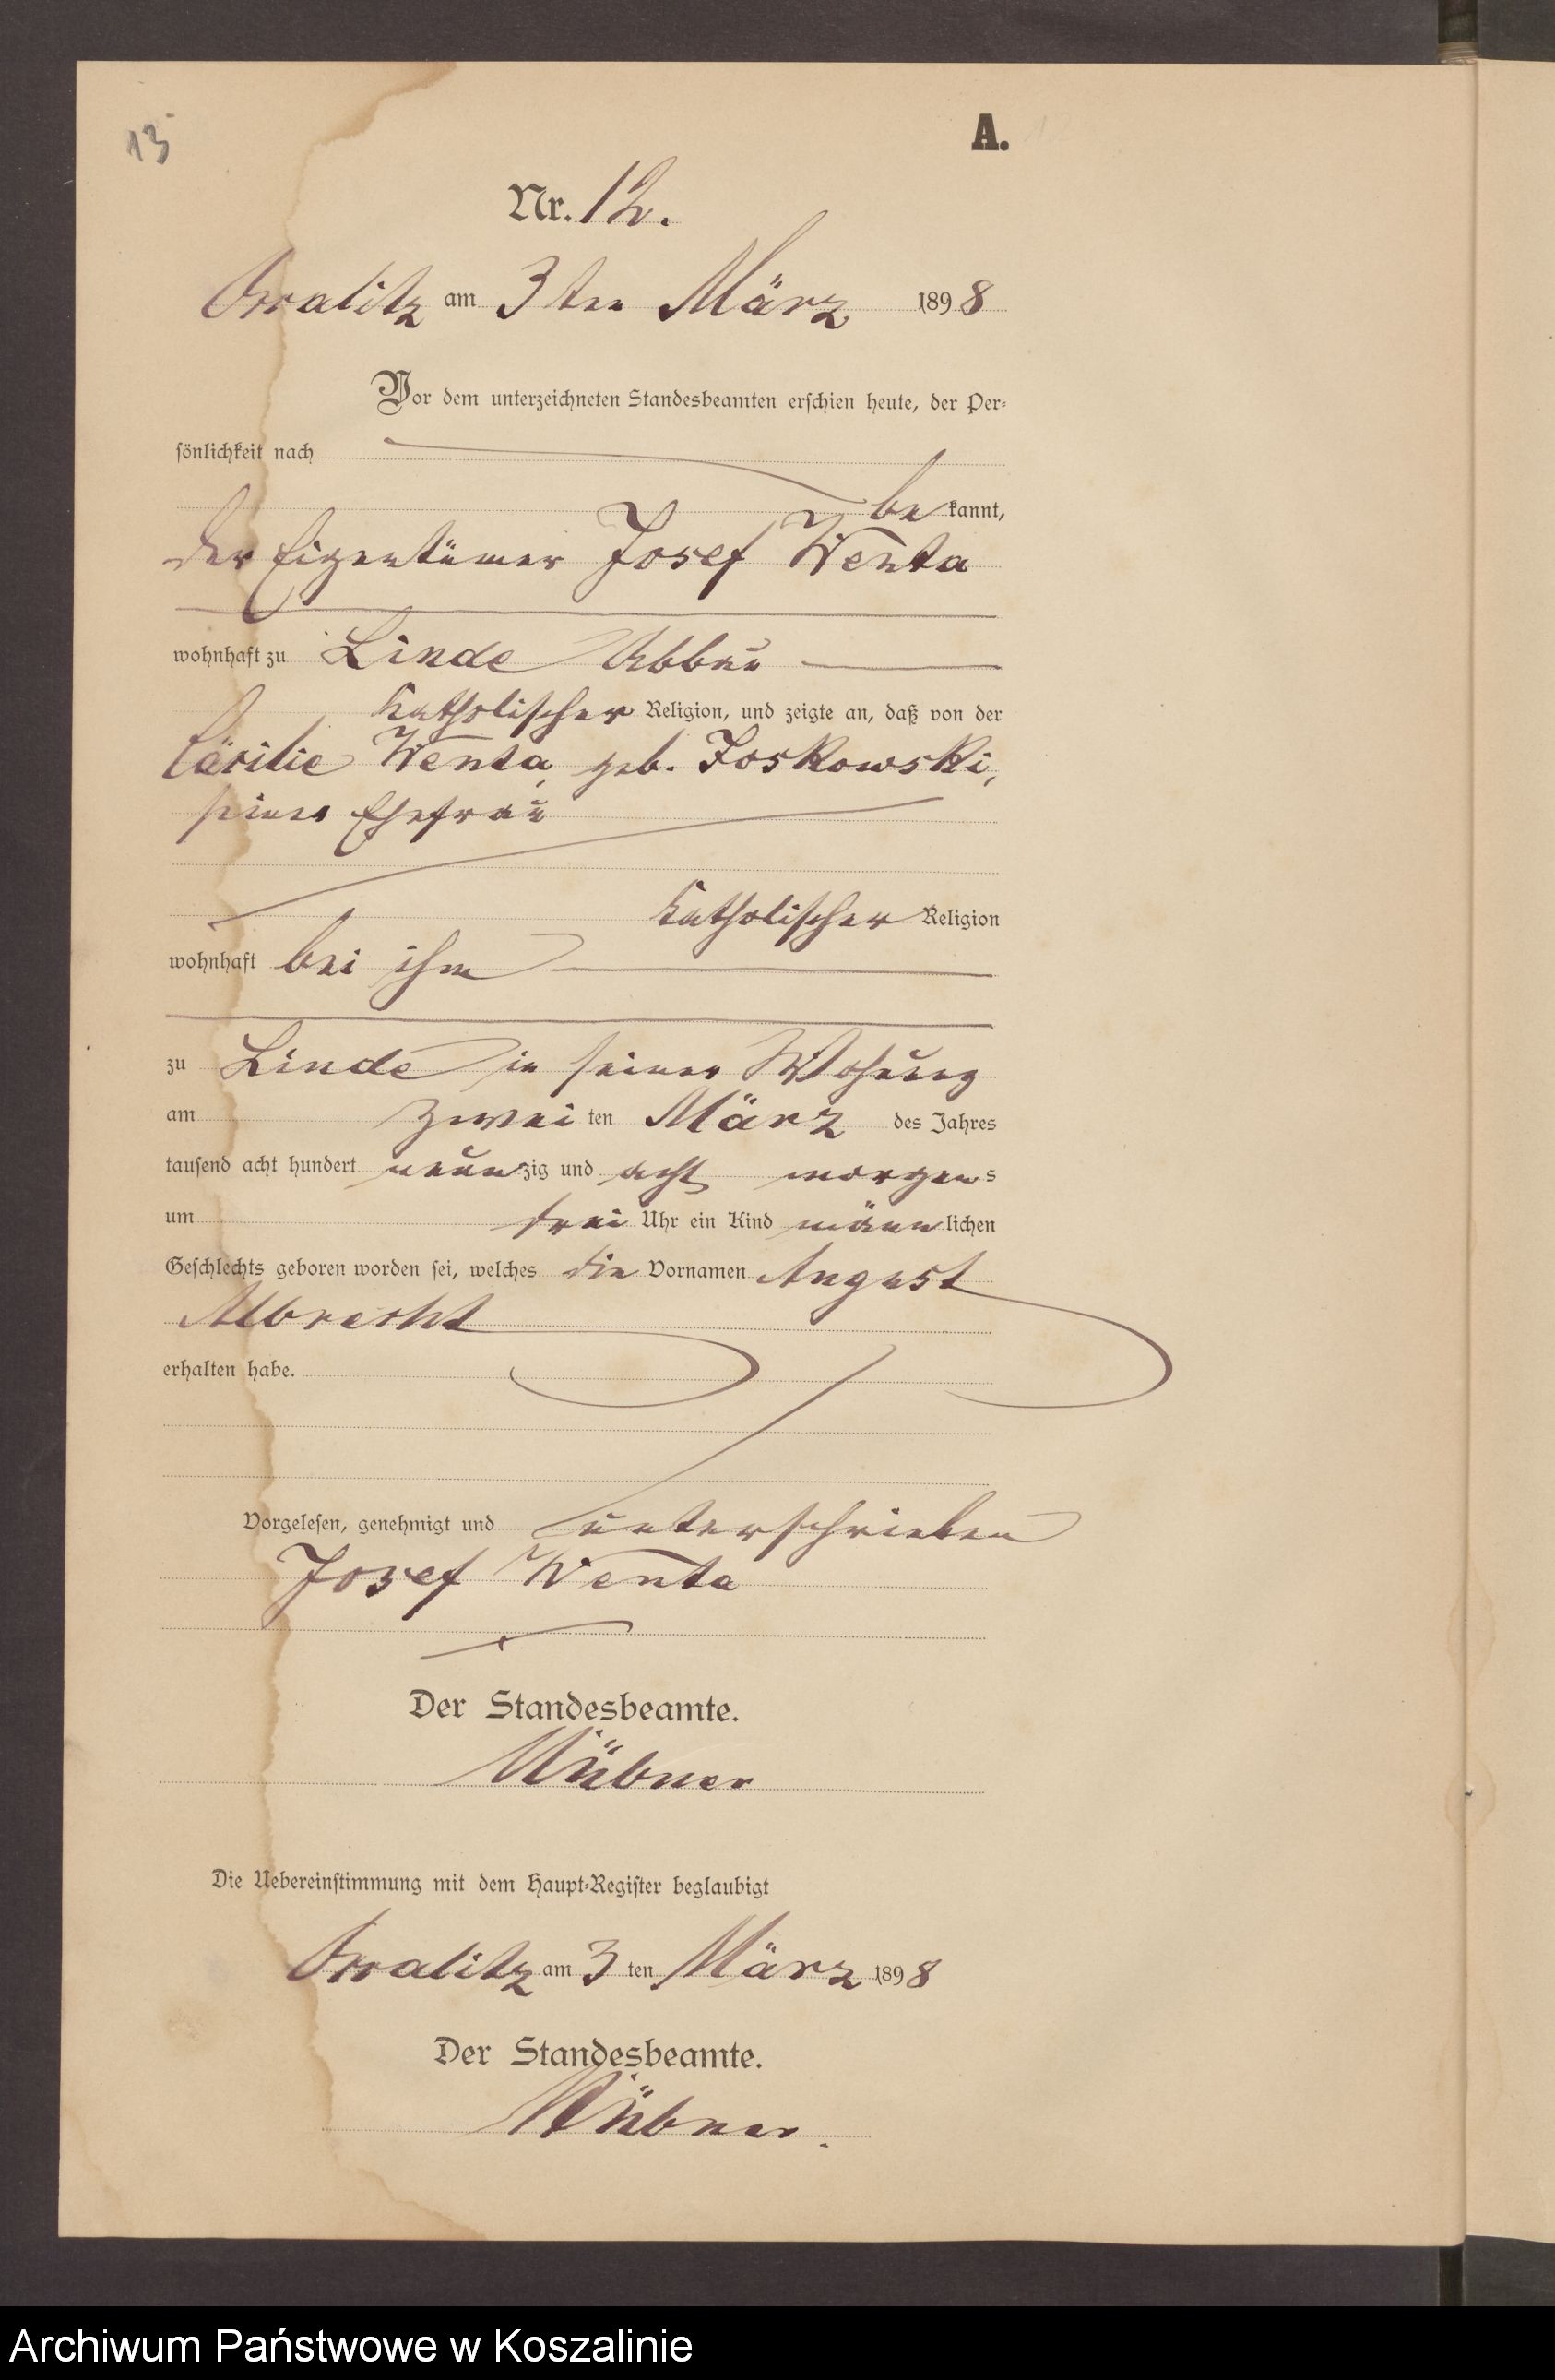 13
A.
Nr. 12.
am 3ten März 1898
Vor dem unterzeichneten Standesbeamten erschien heute, der Per-
sönlichkeit nach
be kannt,
der Eigentümer Josef Wenta
wohnhaft zu Linde Abbau
katholischer Religion, und zeigte an, daß von der
Cäcilie Wenta, geb. Joskowski,
seiner Ehefrau
katholischer Religion
wohnhaft bei ihm
zu Linde in seiner Wohnung
am zwei ten März des Jahres
tausend acht hundert neun zig und acht morgens
um drei Uhr ein Kind männ lichen
Geschlechts geboren worden sei, welches die Vornamen August
Albrecht
erhalten habe.
Vorgelesen, genehmigt und unterschrieben
Josef Wenta
Der Standesbeamte.
Die Uebereinstimmung mit dem Haupt-Register beglaubigt
am 3 ten März 1898
Der Standesbeamte.
Archiwum Państwowe w Koszalinie